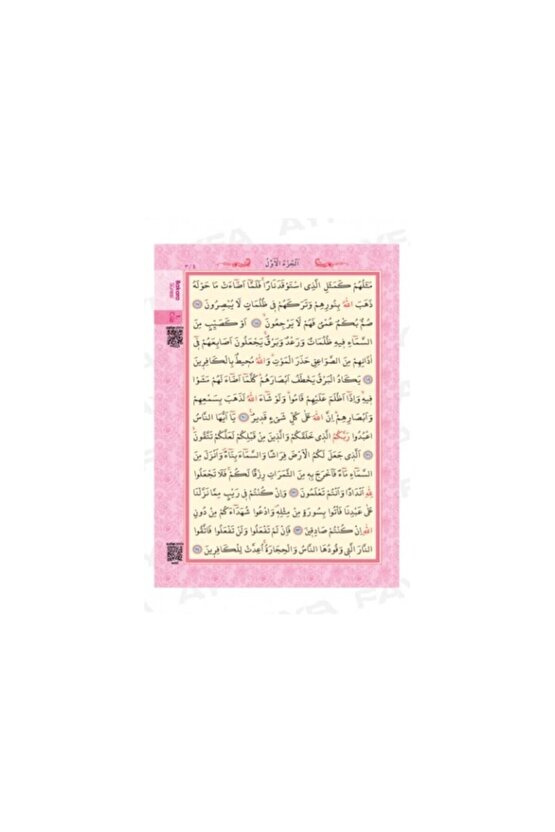 اَلْجُزْءُ الْاَوَّلُ
٣ / ٤
Bakara
Suresi
1
Cüz
مَثَلُهُمْ كَمَثَلِ الَّذِى اسْتَوْقَدَ نَارًاۚ فَلَمَّٓا اَضَٓاءَتْ مَا حَوْلَهُ
ذَهَبَ اللّٰهُ بِنُورِهِمْ وَتَرَكَهُمْ فٖى ظُلُمَاتٍ لَا يُبْصِرُونَ ﴿١٧﴾
صُمٌّ بُكْمٌ عُمْىٌ فَهُمْ لَا يَرْجِعُونَۙ ﴿١٨﴾ اَوْ كَصَيِّبٍ مِنَ
السَّمَٓاءِ فٖيهِ ظُلُمَاتٌ وَرَعْدٌ وَبَرْقٌۚ يَجْعَلُونَ اَصَابِعَهُمْ فٖٓى
اٰذَانِهِمْ مِنَ الصَّوَاعِقِ حَذَرَ الْمَوْتِؕ وَاللّٰهُ مُحٖيطٌ بِالْكَافِرٖينَ
﴿١٩﴾ يَكَادُ الْبَرْقُ يَخْطَفُ اَبْصَارَهُمْؕ كُلَّمَٓا اَضَٓاءَ لَهُمْ مَشَوْا
فٖيهِۙ وَاِذَٓا اَظْلَمَ عَلَيْهِمْ قَامُواؕ وَلَوْ شَٓاءَ اللّٰهُ لَذَهَبَ بِسَمْعِهِمْ
وَاَبْصَارِهِمْؕ اِنَّ اللّٰهَ عَلٰى كُلِّ شَىْءٍ قَدٖيرٌ ﴿٢٠﴾ يَٓا اَيُّهَا النَّاسُ
اعْبُدُوا رَبَّكُمُ الَّذٖى خَلَقَكُمْ وَالَّذٖينَ مِنْ قَبْلِكُمْ لَعَلَّكُمْ تَتَّقُونَۙ
﴿٢١﴾ اَلَّذٖى جَعَلَ لَكُمُ الْاَرْضَ فِرَاشًا وَالسَّمَٓاءَ بِنَٓاءًࣕ وَاَنْزَلَ مِنَ
السَّمَٓاءِ مَٓاءً فَاَخْرَجَ بِهٖ مِنَ الثَّمَرَاتِ رِزْقًا لَكُمْۚ فَلَا تَجْعَلُوا
لِلّٰهِ اَنْدَادًا وَاَنْتُمْ تَعْلَمُونَ ﴿٢٢﴾ وَاِنْ كُنْتُمْ فٖى رَيْبٍ مِمَّا نَزَّلْنَا
عَلٰى عَبْدِنَا فَأْتُوا بِسُورَةٍ مِنْ مِثْلِهٖࣕ وَادْعُوا شُهَدَٓاءَكُمْ مِنْ دُونِ
اللّٰهِ اِنْ كُنْتُمْ صَادِقٖينَ ﴿٢٣﴾ فَاِنْ لَمْ تَفْعَلُوا وَلَنْ تَفْعَلُوا فَاتَّقُوا
النَّارَ الَّتٖى وَقُودُهَا النَّاسُ وَالْحِجَارَةُۚ اُعِدَّتْ لِلْكَافِرٖينَ ﴿٢٤﴾